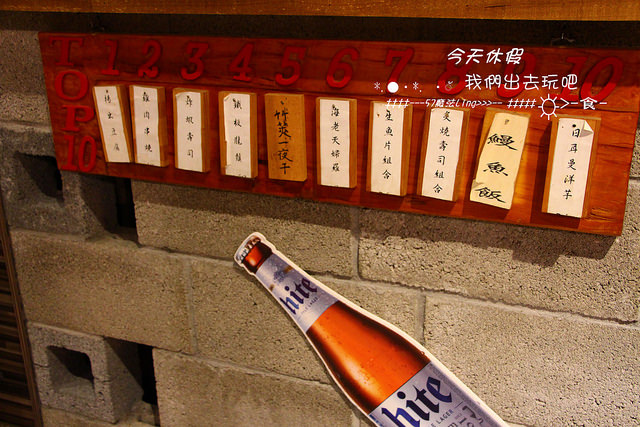 今天休假
我們出去玩吧
####---57瞎拼Ling>>>-- #####
>-食-
TOP10
1 2 3 4 5 6 7 8 9 10
揚出豆腐
雞肉串燒
蒜蝦壽司
竹筴一夜干
海老天婦羅
生魚片組合
炙燒壽司組合
鰻魚飯
hite
hite
LAGER